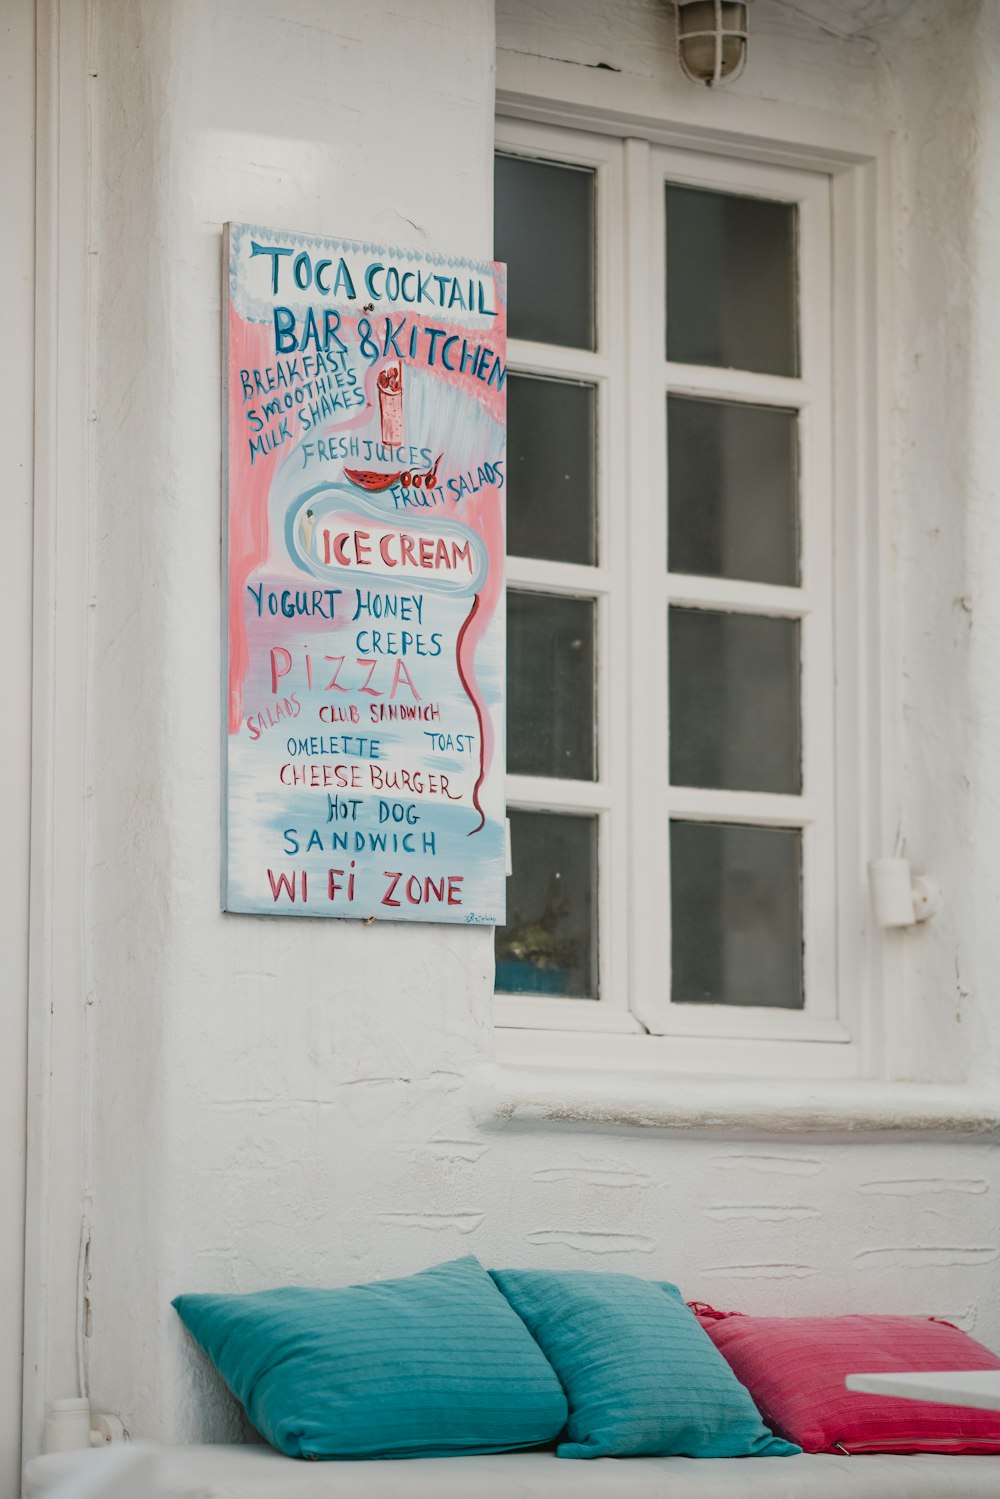 TOCA COCKTAIL
BAR & KITCHEN
BREAKFAST
SMOOTHIES
MILK SHAKES
FRESH JUICES
FRUIT SALADS
ICE CREAM
YOGURT HONEY
CREPES
PIZZA
SALADS
CLUB SANDWICH
OMELETTE TOAST
CHEESE BURGER
HOT DOG
SANDWICH
WI FI ZONE